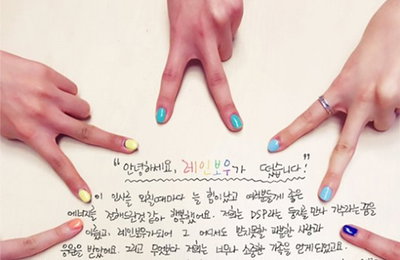 "안녕하세요, 레인보우가 떴습니다!"
이 인사를 외칠때마다 늘 힘이났고 여러분들께 좋은
에너지를 전해드린것 같아 행복했어요. 저희는 DSP라는 둥지를 만나 가수라는 꿈을
이뤘고, 레인보우가되어 그 어디서도 받지못할 과분한 사랑과
응원을 받았어요. 그리고 무엇보다 저희는 너무나 소중한 가족을 얻게되었고요.